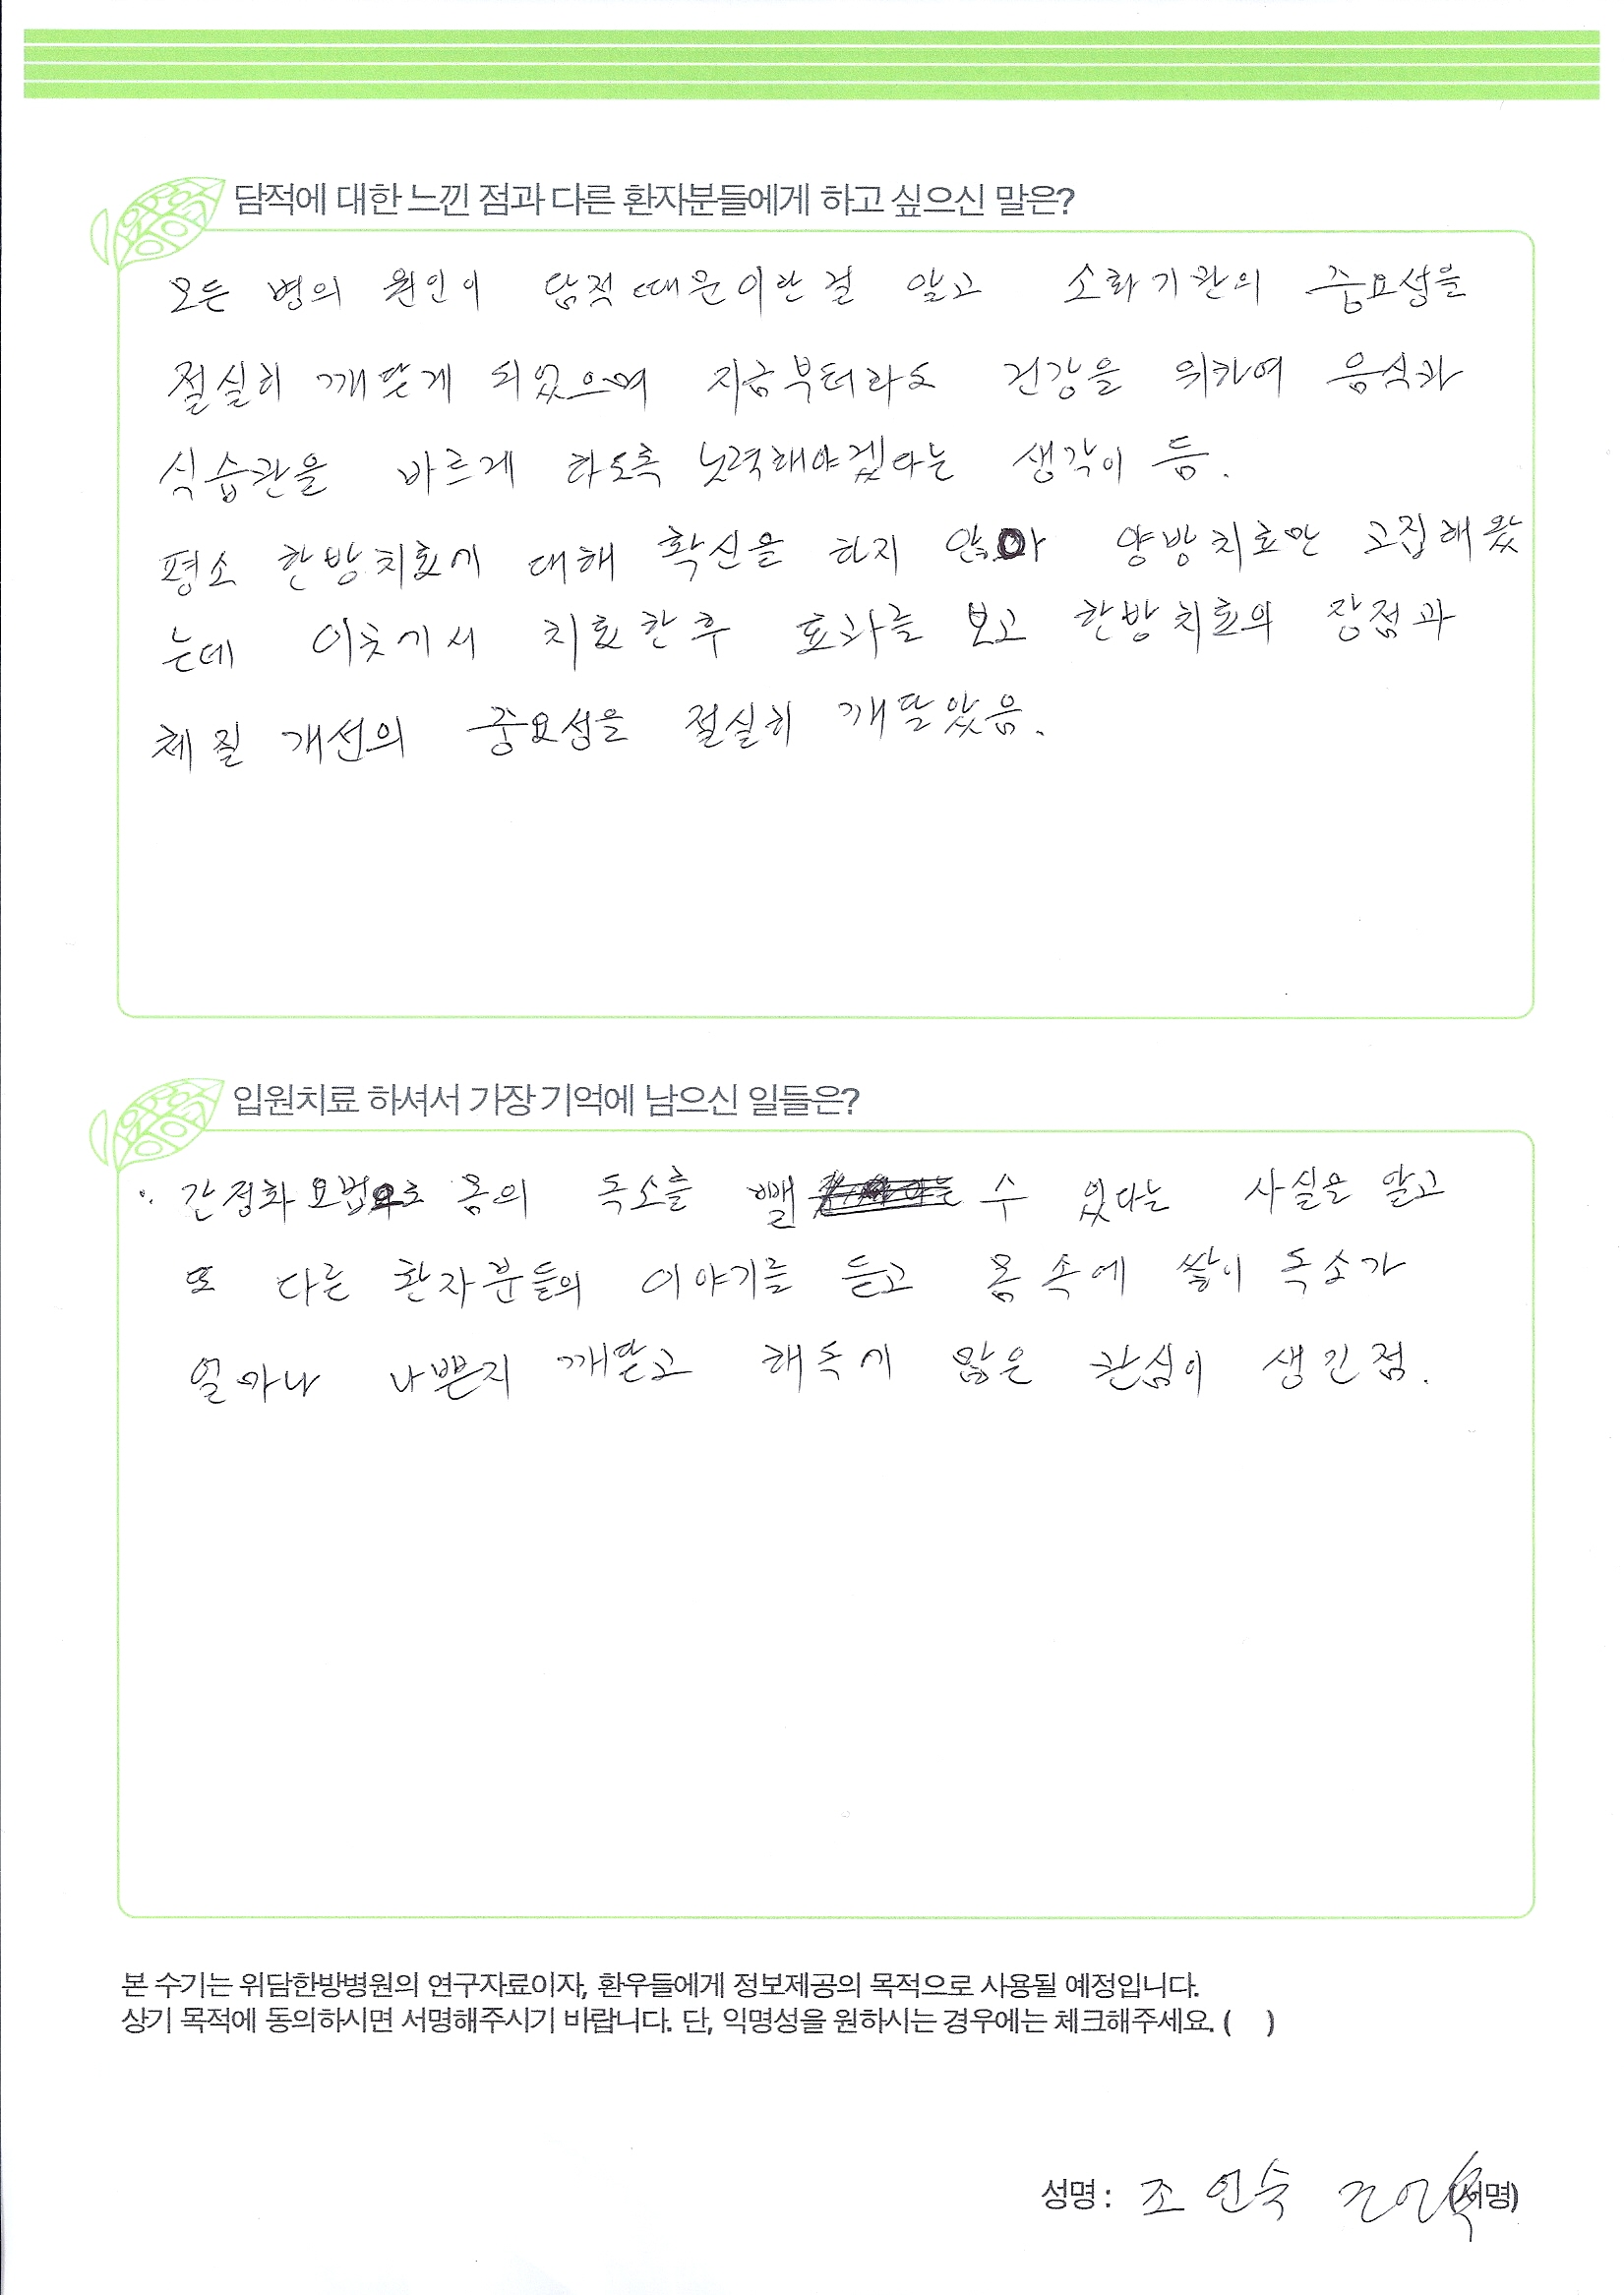 담적에 대한 느낀 점과 다른 환자분들에게 하고 싶으신 말은?
모든 병의 원인이 담적때문이란걸 알고 소화기관의 중요성을
절실히 깨닫게 되었으며 지금부터라도 건강을 위하여 음식과
식습관을 바르게 하도록 노력해야겠다는 생각이 듬.
평소 한방치료에 대해 확신을 하지 않아 양방치료만 고집해왔
는데 이곳에서 치료한후 효과를 보고 한방치료의 장점과
체질 개선의 중요성을 절실히 깨달았음.
입원치료 하셔서 가장 기억에 남으신 일들은?
간정화요법으로 몸의 독소를 뺄 수 있다는 사실을 알고
또 다른 환자분들의 이야기를 듣고 몸 속에 쌓이 독소가
얼마나 나쁜지 깨닫고 해독에 많은 관심이 생긴점.
본 수기는 위담한방병원의 연구자료이자, 환우들에게 정보제공의 목적으로 사용될 예정입니다.
상기 목적에 동의하시면 서명해주시기 바랍니다. 단, 익명성을 원하시는 경우에는 체크해주세요. ( )
성명 : 조인숙 (서명)